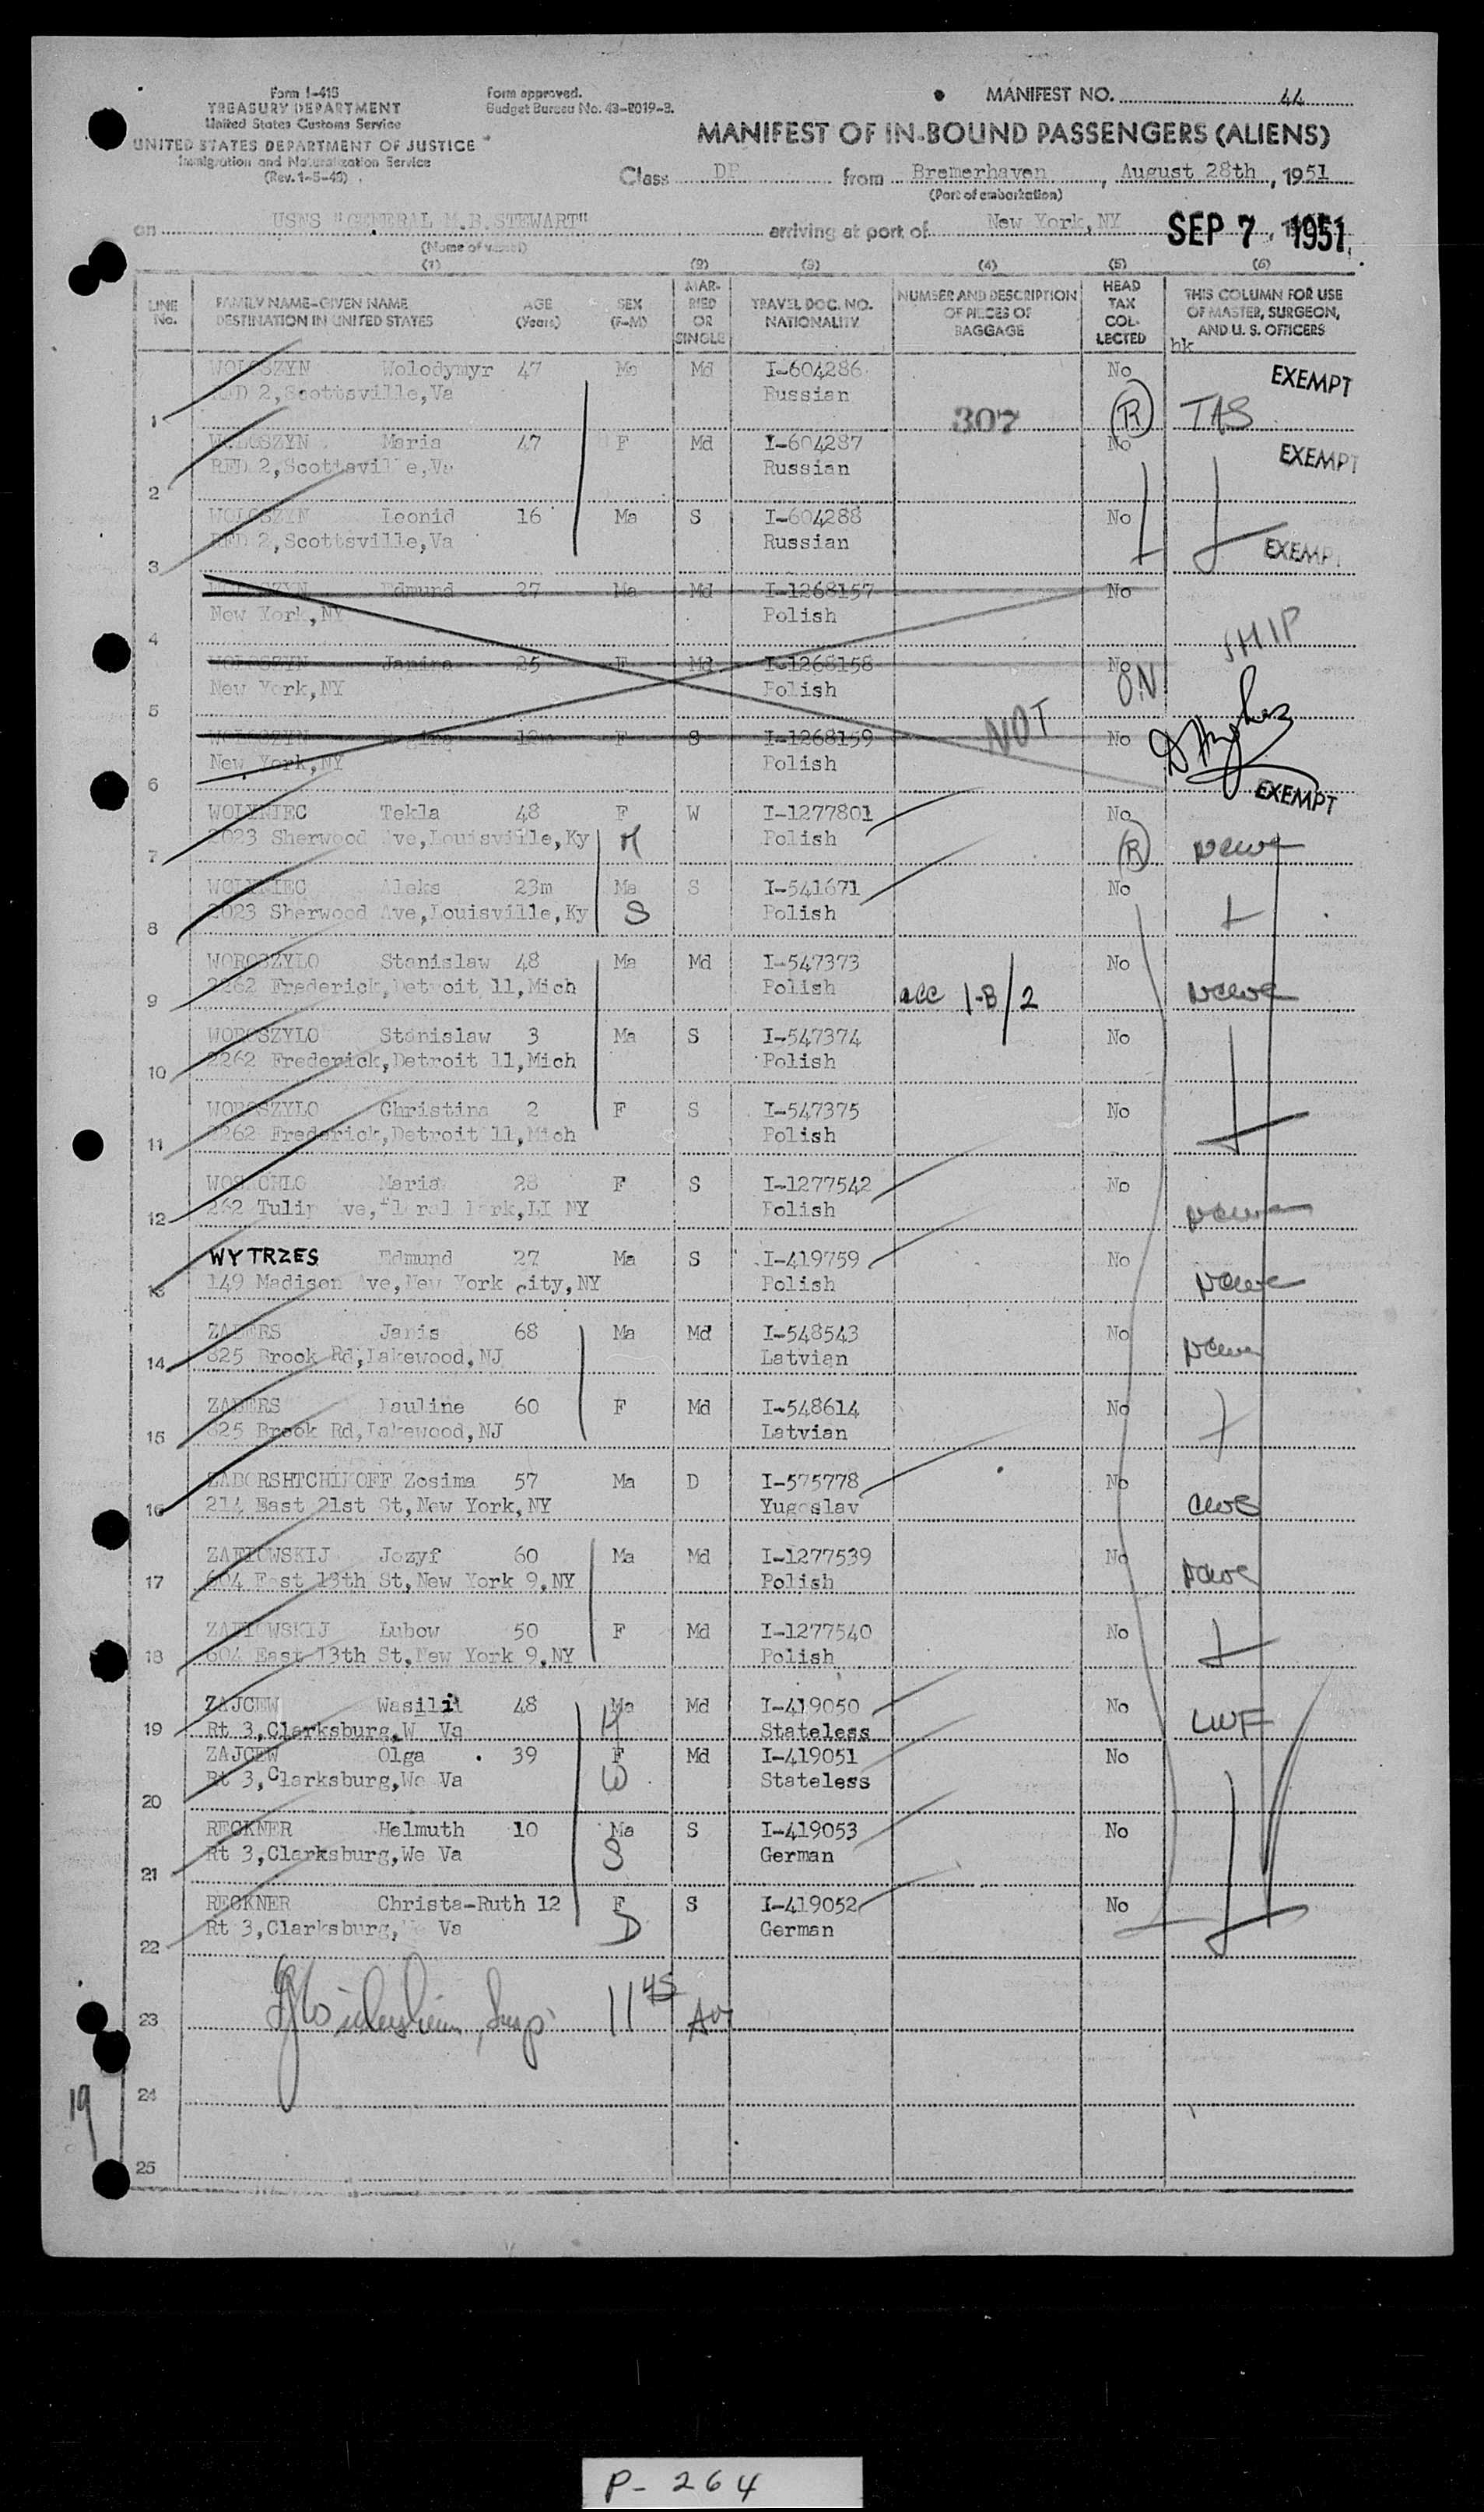 Form I-415
TREASURY DEPARTMENT
United States Customs Service
UNITED STATES DEPARTMENT OF JUSTICE
Immigration and Naturalization Service
(Rev. 1-5-49)
Form approved.
Budget Bureau No. 43-R019-3.
MANIFEST NO. 44
MANIFEST OF IN-BOUND PASSENGERS (ALIENS)
Class DP from Bremerhaven, August 28th, 1951
(Port of embarkation)
on USNS "GENERAL M.B.STEWART" arriving at port of New York, NY SEP 7 1951
(Name of vessel)
(1) (2) (3) (4) (5) (6)
LINE No. FAMILY NAME-GIVEN NAME DESTINATION IN UNITED STATES AGE (Years) SEX (F-M) MARRIED OR SINGLE TRAVEL DOC. NO. NATIONALITY NUMBER AND DESCRIPTION OF PIECES OF BAGGAGE HEAD TAX COLLECTED THIS COLUMN FOR USE OF MASTER, SURGEON, AND U. S. OFFICERS
hk
WOLOSZYN Wolodymyr 47 Ma Md I-604286 No EXEMPT
1 RFD 2,Scottsville,Va Russian 307 (R) TAS
WOLOSZYN Maria 47 F Md I-604287 No EXEMPT
2 RFD 2,Scottsville,Va Russian
WOLOSZYN Leonid 16 Ma S I-604288 No
3 RFD 2,Scottsville,Va Russian EXEMPT
WOLOSZYN Edmund 27 Ma Md I-1268157 No
4 New York,NY Polish SHIP
WOLOSZYN Janina 25 F Md I-1268158 No
5 New York,NY Polish ON
WOLOSZYN 12m F S I-1268159 NOT No
6 New York,NY Polish
EXEMPT
WOLYNIEC Tekla 48 F W I-1277801 No
7 2023 Sherwood Ave,Louisville,Ky M Polish (R) NCWC
WOLYNIEC Aleks 23m Ma S I-541671 No
8 2023 Sherwood Ave,Louisville,Ky S Polish
WOROSZYLO Stanislaw 48 Ma Md I-547373 No
9 2262 Frederick,Detroit 11,Mich Polish acc 1-B/2 NCWC
WOROSZYLO Stanislaw 3 Ma S I-547374 No
10 2262 Frederick,Detroit 11,Mich Polish
WOROSZYLO Christina 2 F S I-547375 No
11 2262 Frederick,Detroit 11,Mich Polish
Maria 28 F S I-1277542 No
12 262 Tulip Ave,Floral Park,LI NY Polish NCWC
WYTRZES Edmund 27 Ma S I-419759 No
13 149 Madison Ave,New York City,NY Polish NCWC
ZADERS Janis 68 Ma Md I-548543 No
14 825 Brook Rd,Lakewood,NJ Latvian NCWC
ZADERS Pauline 60 F Md I-548614 No
15 825 Brook Rd,Lakewood,NJ Latvian
ZADORSHTCHIKOFF Zosima 57 Ma D I-575778 No
16 214 East 21st St,New York,NY Yugoslav CWS
Jozyf 60 Ma Md I-1277539 No
17 604 East 13th St,New York 9,NY Polish NCWC
Lubow 50 F Md I-1277540 No
18 604 East 13th St,New York 9,NY Polish
ZAJCEW Wasilii 48 Ma Md I-419050 No
19 Rt 3,Clarksburg,W Va H Stateless LWF
ZAJCEW Olga 39 F Md I-419051 No
20 Rt 3,Clarksburg,We Va W Stateless
RECKNER Helmuth 10 Ma S I-419053 No
21 Rt 3,Clarksburg,We Va S German
RECKNER Christa-Ruth 12 F S I-419052 No
22 Rt 3,Clarksburg, Va D German
23 Insp 11 45 AM
24
19
25
P-264